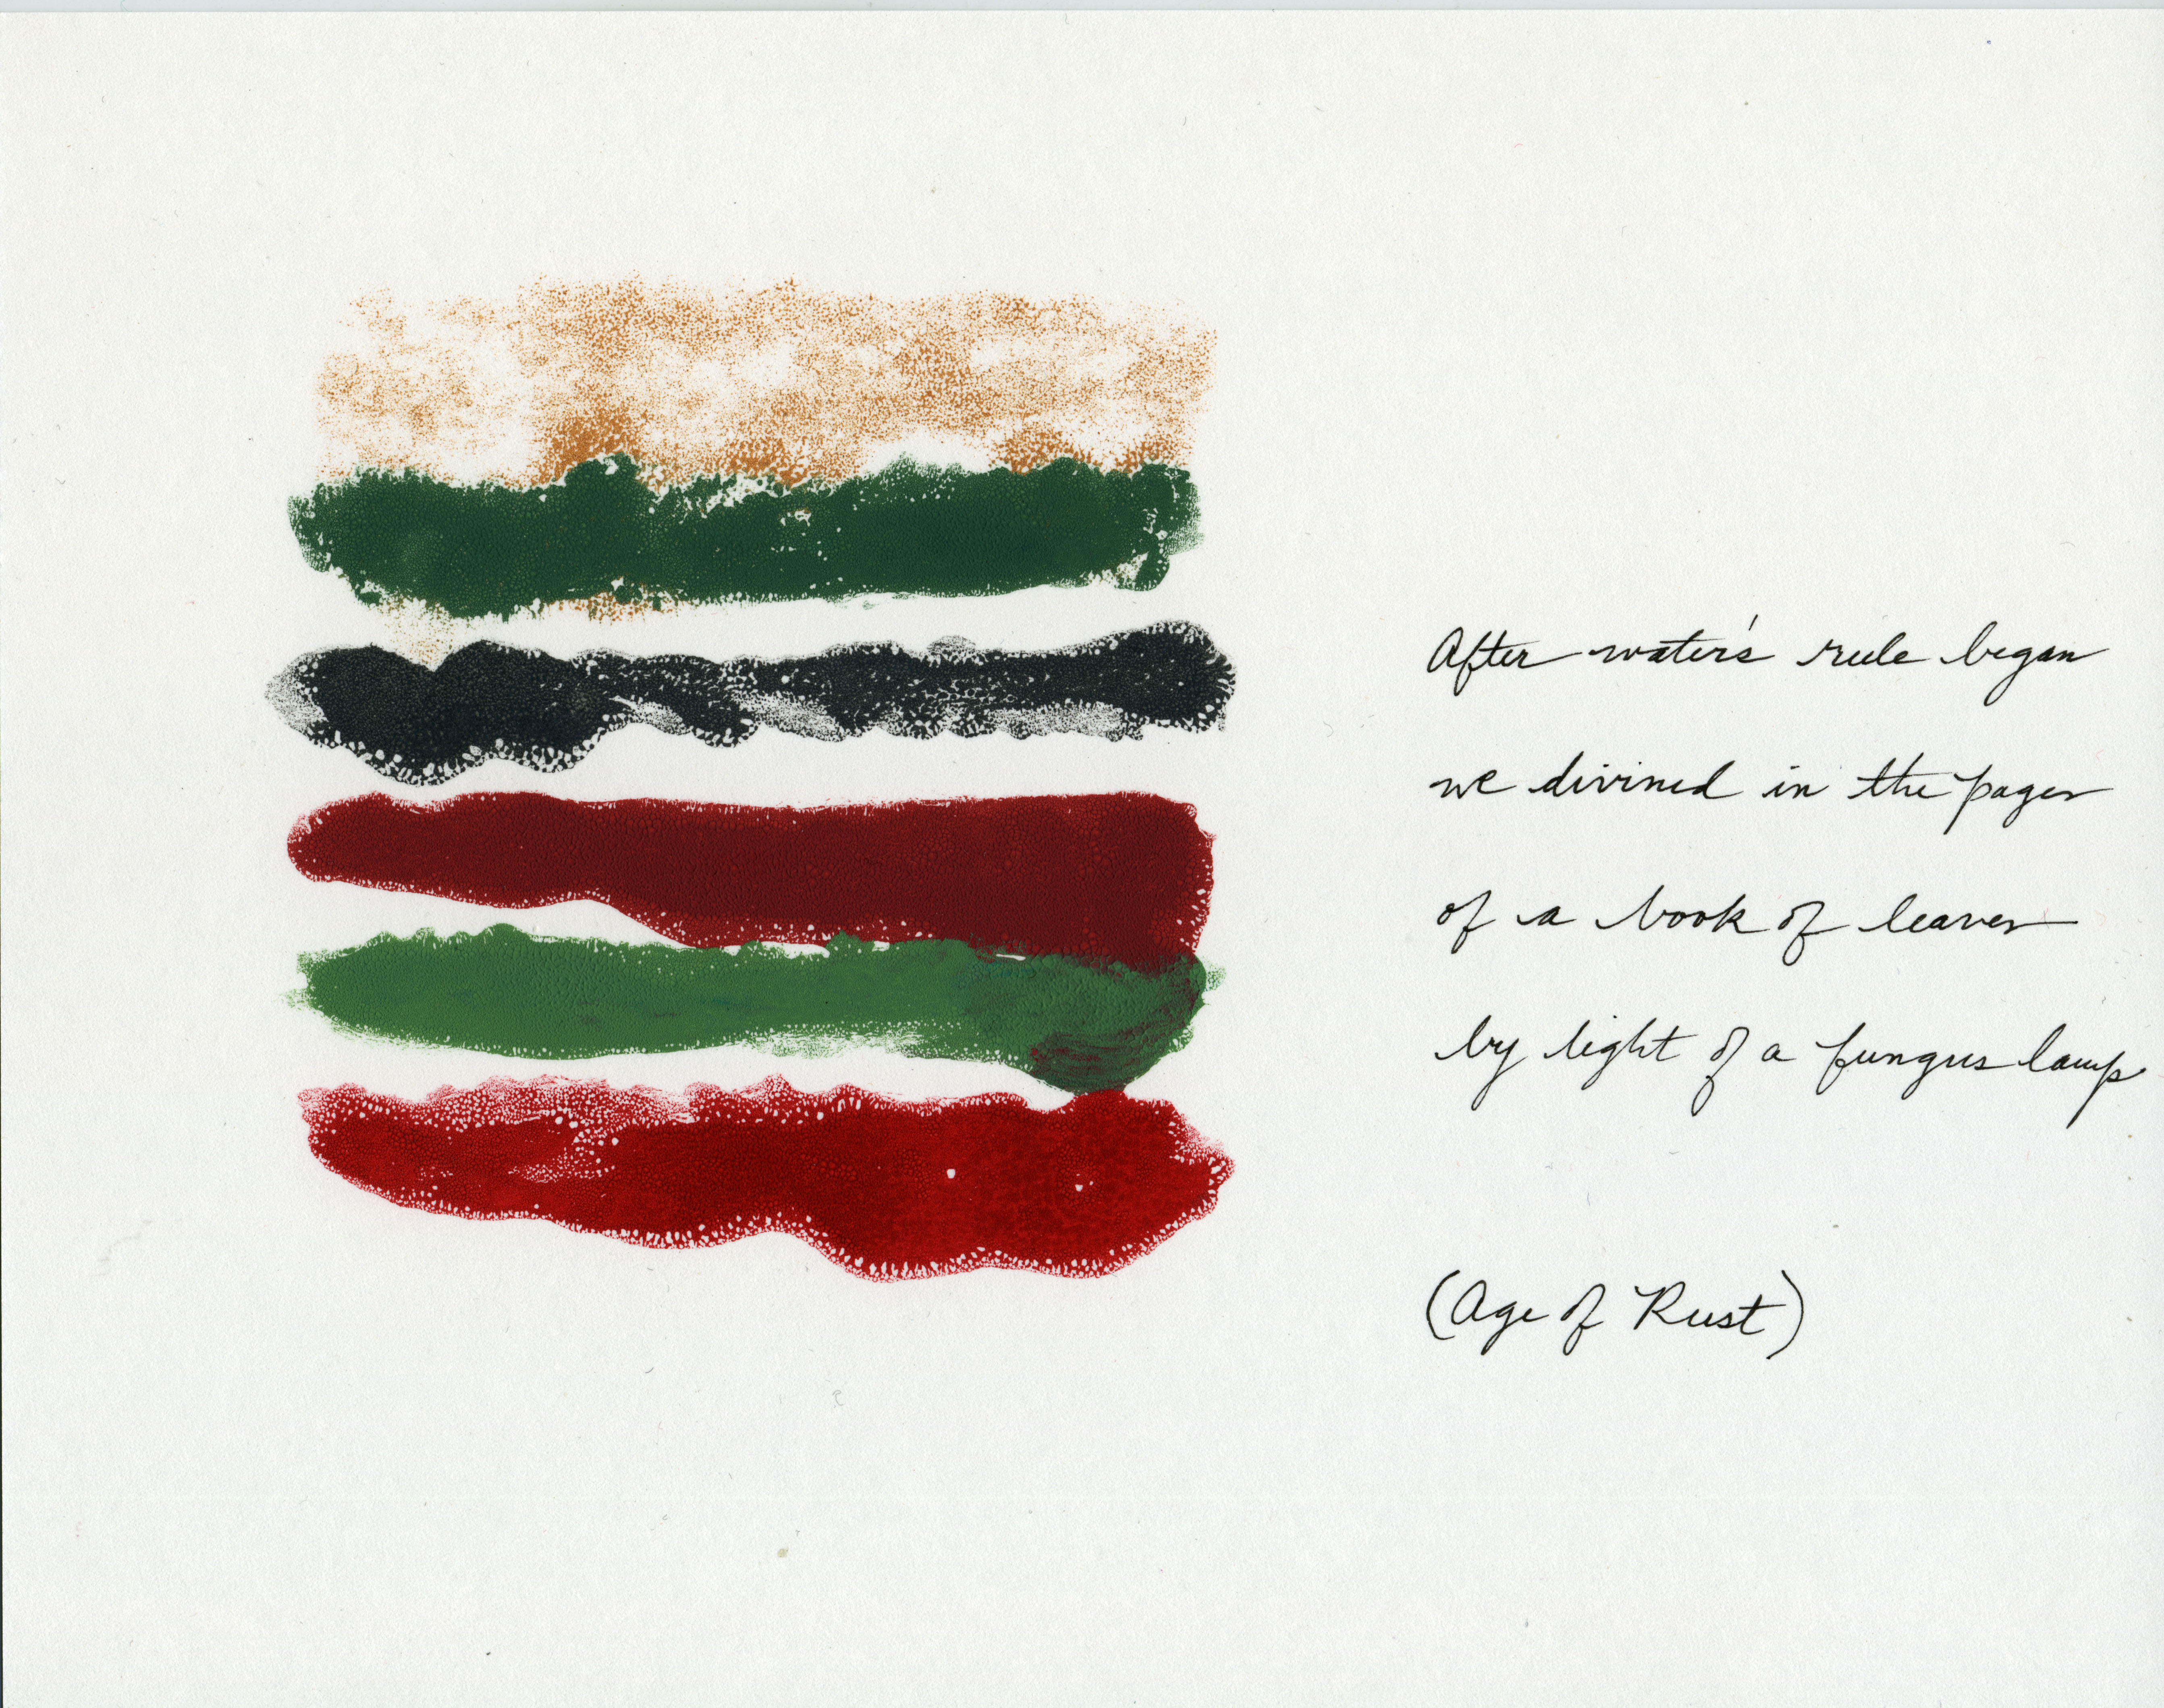 After water's rule began
we divined in the pages
of a book of leaves
by light of a fungus lamp
(Age of Rust)